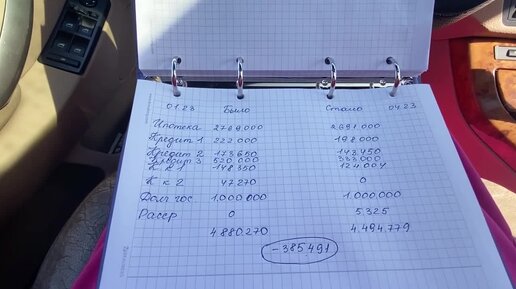 01.23 Было Стало 04.23
Ипотека 2769000 2691.000
Кредит 1 222.000 198.000
Кредит 2 173650 143.450
Кредит 3 520000 333.000
К к 1 148.350 124.004
К к 2 47270 0
Долг гос. 1.000.000 1.000.000
Расср 0 5.325
4.880.270 4.494.779
-385491